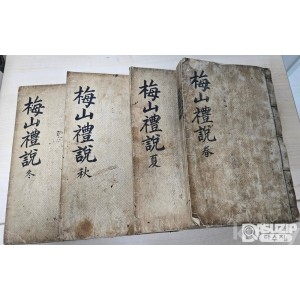 梅山禮說 春
梅山禮說 夏
梅山禮說 秋
梅山禮說 冬